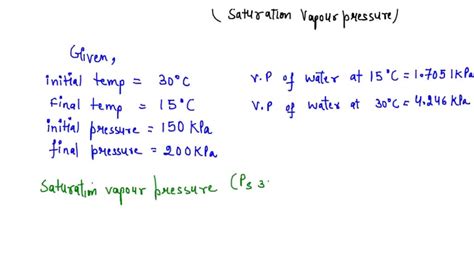 (Saturation Vapour pressure)
Given,
initial temp = 30°C
final temp = 15°C
initial pressure = 150 KPa
final pressure = 200 KPa
V.P of water at 15°C = 1.7051 KPa
V.P of water at 30°C = 4.246 KPa
Saturation vapour pressure (Ps 3